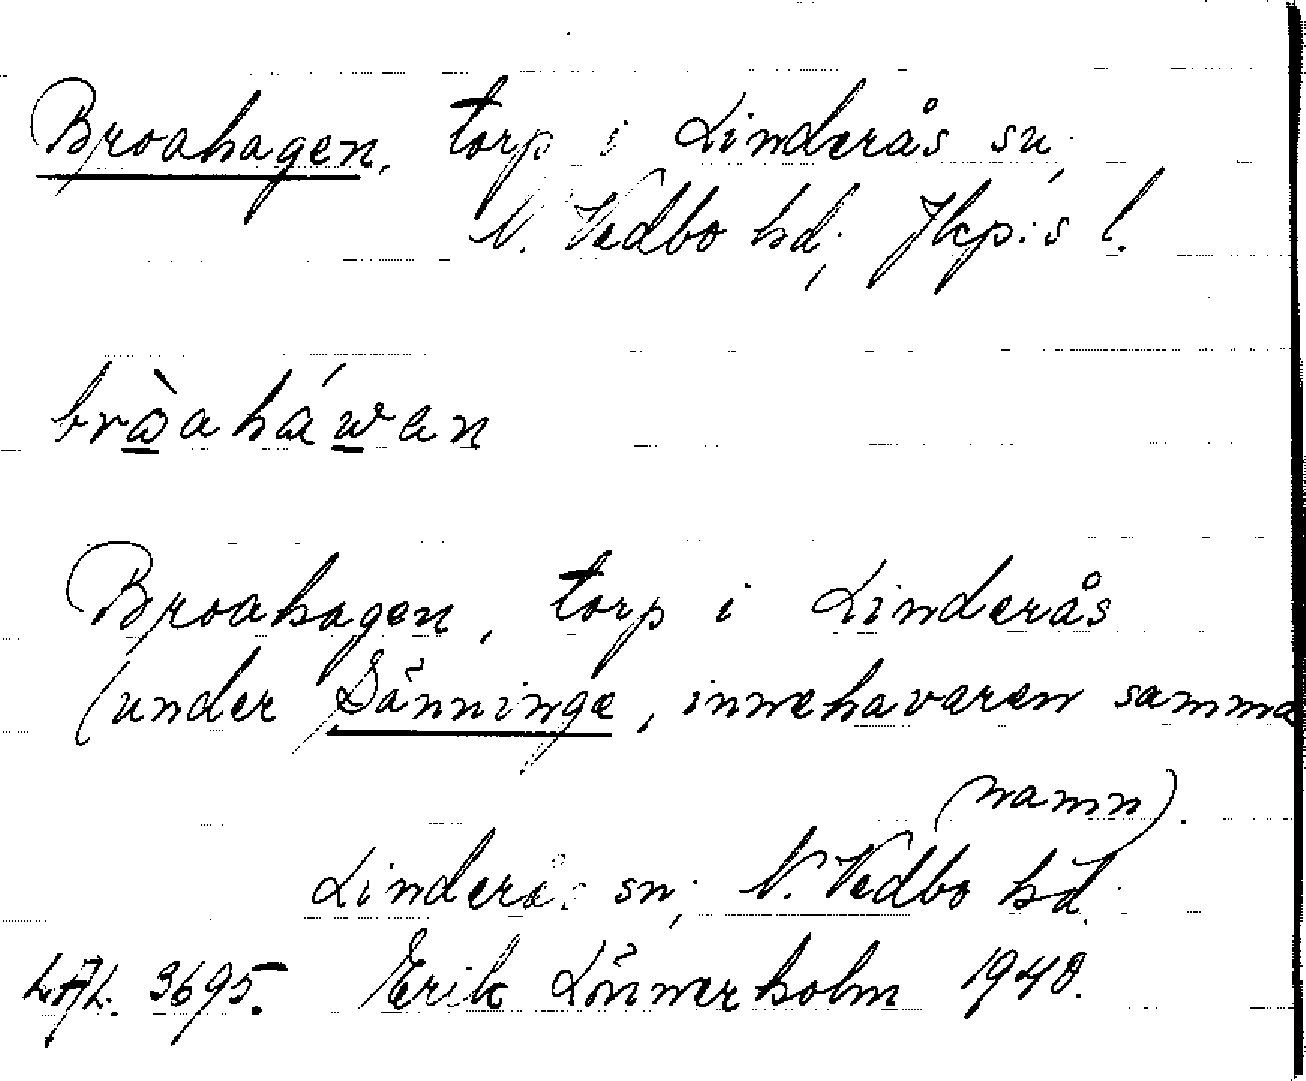 Broahagen, torp i Linderås sn,
N. Vedbo hd, Jkp:s l.
bròaháwan
Broahagen, torp i Linderås
(under Sänninge, innehavaren samma
namn).
Linderås sn, N. Vedbo hd.
3695. Erik Lönnerholm 1940.